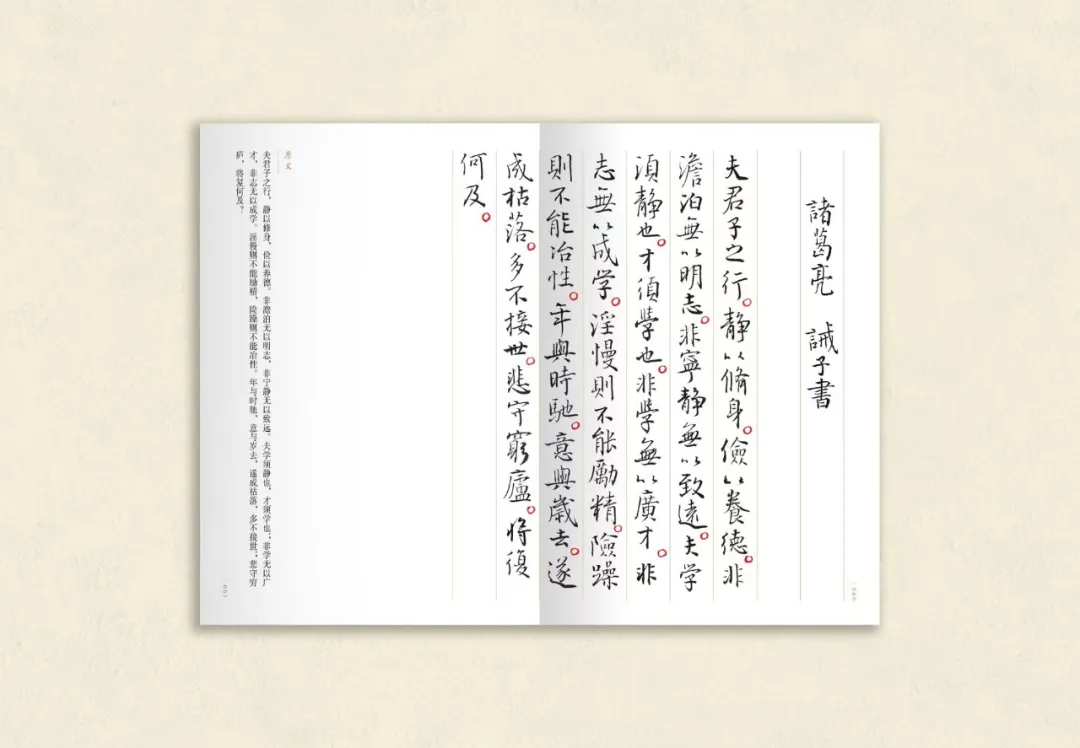 諸葛亮 誡子書
夫君子之行。静以脩身。儉以養德。非
澹泊無以明志。非寧静無以致遠。夫学
須静也。才須學也。非學無以廣才。非
志無以成学。淫慢則不能勵精。險躁
則不能冶性。年與時馳。意與歲去。遂
成枯落。多不接世。悲守窮廬。将復
何及。
原文
夫君子之行，静以修身，俭以养德。非澹泊无以明志，非宁静无以致远。夫学须静也，才须学也，非学无以广
才，非志无以成学。淫慢则不能励精，险躁则不能冶性。年与时驰，意与岁去，遂成枯落，多不接世；悲守穷
庐，将复何及？
001